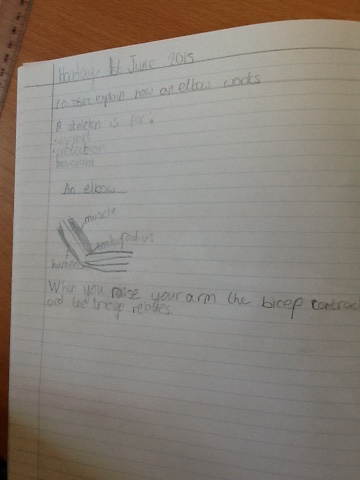 Monday 1st June 2015
LO: explain how an elbow works
A skeleton is for:
support
protection
movement
An elbow
muscle
radius
humerus
When you raise your arm the bicep contrac
and the tricep relates